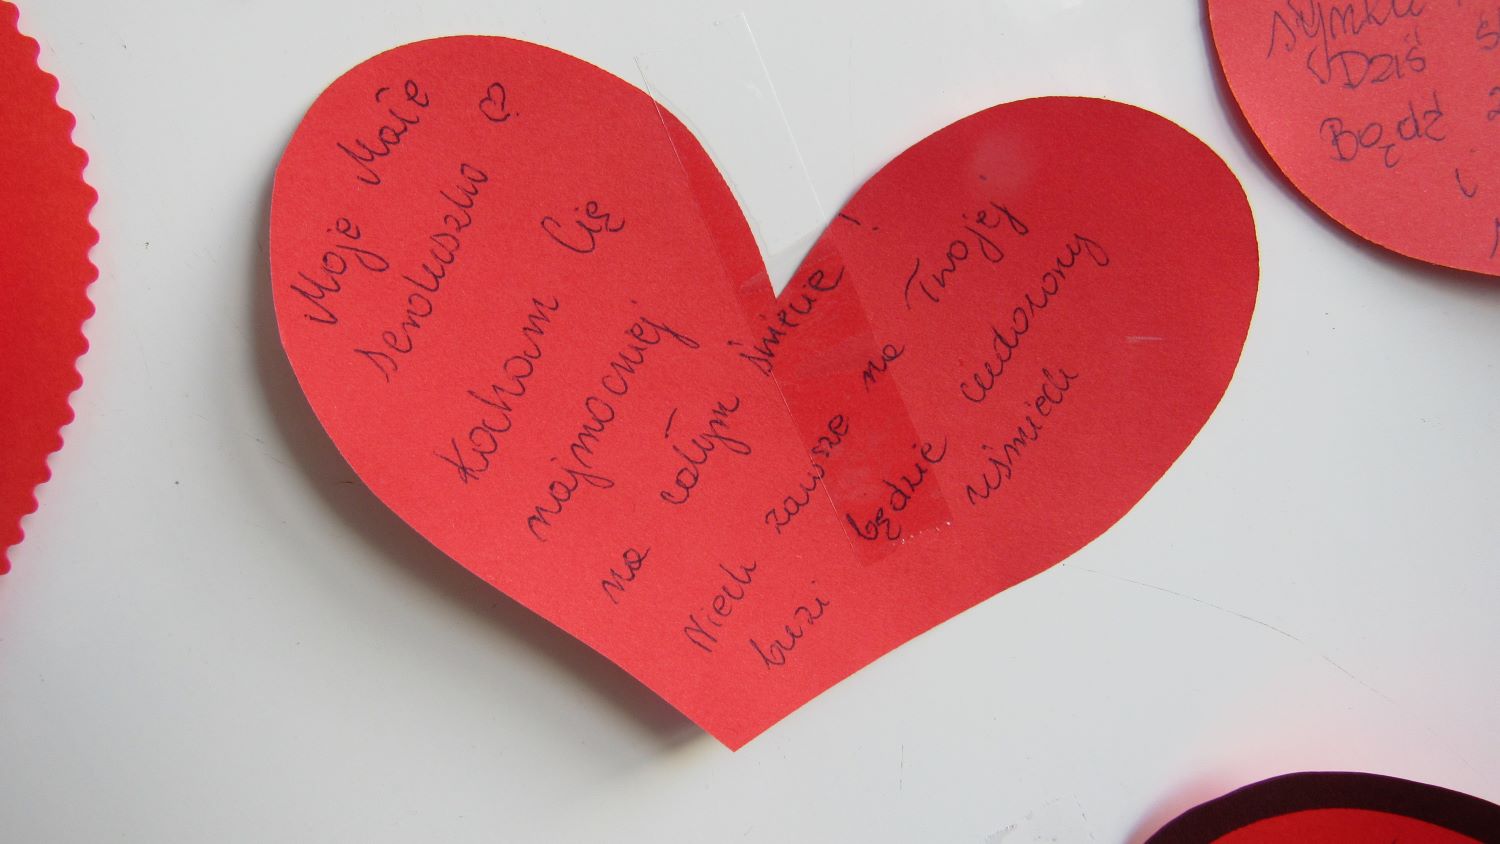 Moje Małe
serduszko ♡
Kocham Cię
najmocniej
na całym świecie!
Niech zawsze na Twojej
buzi będzie cudowny
uśmiech
synku
Dziś
Bądź
i